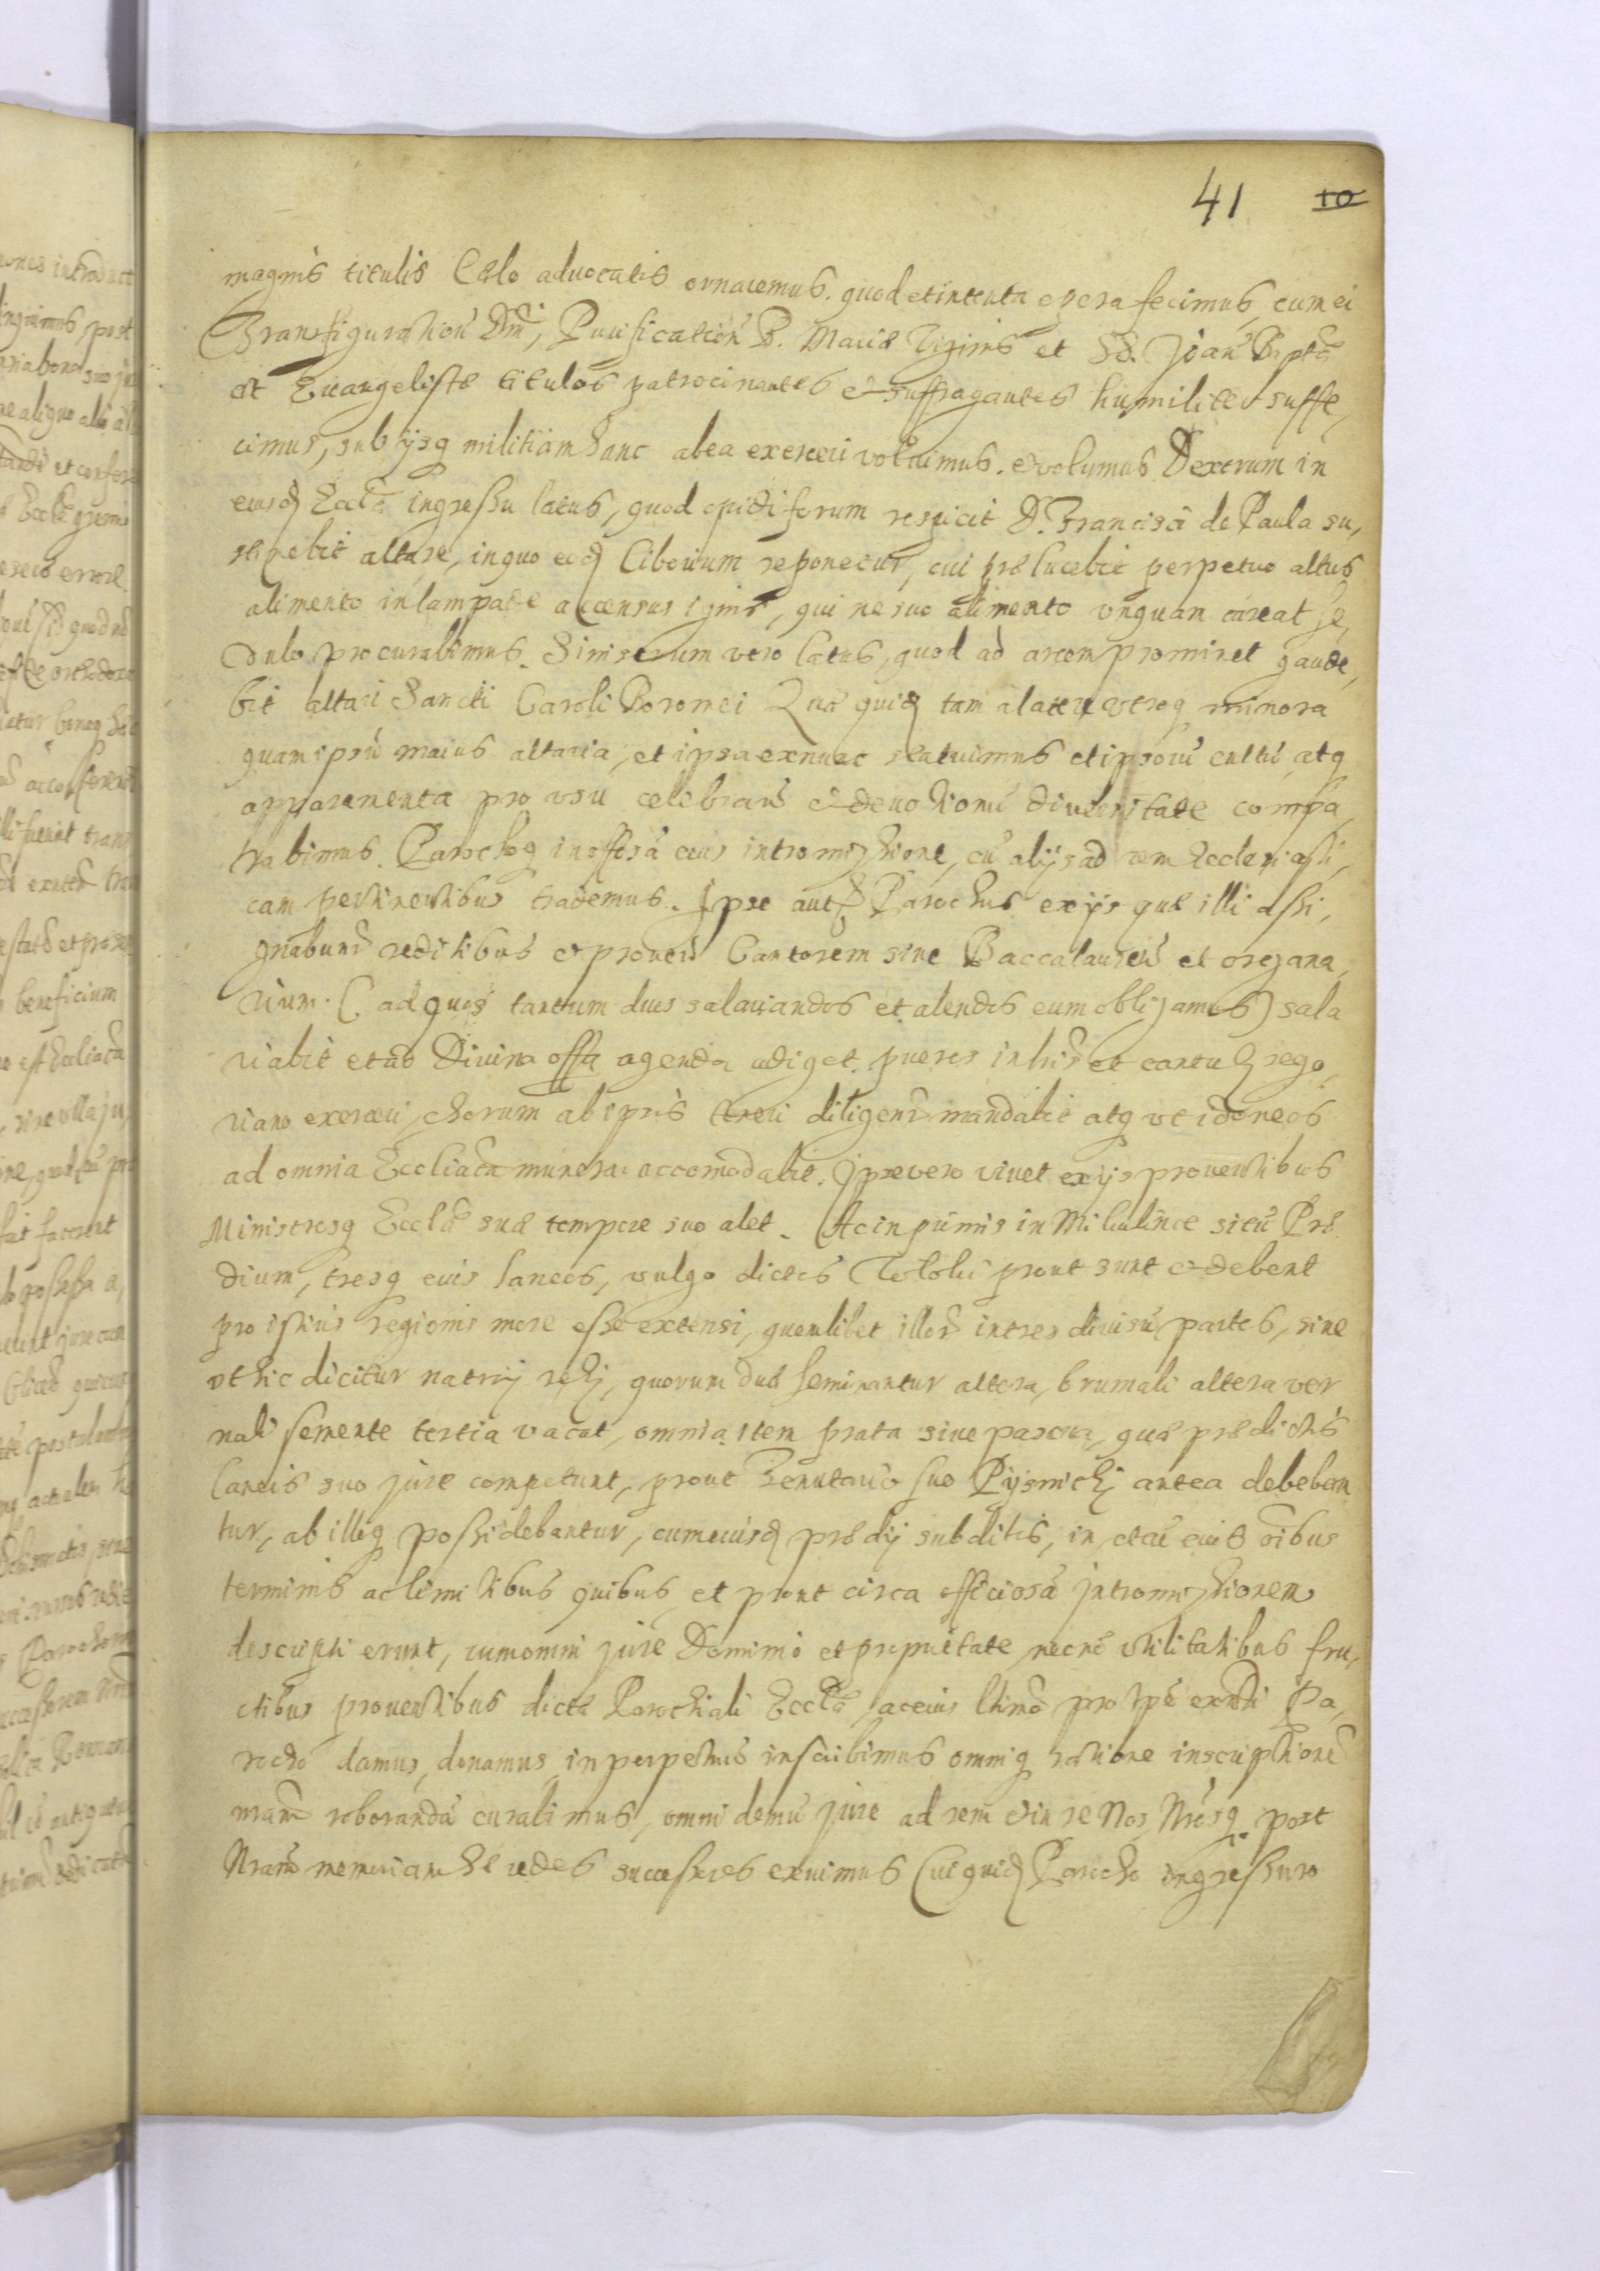 41 10
magnis titulis Cælo advocatis ornaremus. quod et intenta opera fecimus, cum ei
Transfigurationē Dn̄i, Purificationē B. Mariæ Virginis et SS. Joan̄ Baptæ
et Evangelistæ titulos patrocinantes & suffragantes humiliter suffe,
cimus, sub ijsq militiam hanc ab ea exerceri voluimus. & volumus Dextrum in
eiusd Eccla ingressu latus, quod opidi forum respicit D. Francisci de Paula su,
stinebit altare, in quo eod Ciborium reponetur, cui prælucebit perpetuo altus
alimento in lampade accensus ignis, qui ne suo alimento unquam careat se,
dulo procurabimus. Sinistrum vero latus, quod ad arcem prominet gaude,
bit altari Sancti Caroli Boromei Quæ quid tam a latere utroq minora
quam ipsū maius altaria, et ipsa ex nunc statuimus et ipsorū cultū atq
apparamenta pro usu celebrans & devotionū diversitate compa,
rabimus. Parochoq in officiosa eius intromissione, cū alijs ad rem Ecclesiasti,
cam pertinentibus trademus. Ipse autē Parochus ex ijs quæ illi assi,
gnabunt reditibus et provent Cantorem sive Baccalaureū et organa,
rium. (ad quos tantum duos salariandos et alendos eum obligamus) sala
riabit et ad Divina offa agenda adiget. pueros in hisce et cantu Grego,
riano exerceri, chorum ab ipsis teneri diligent mandabit atq ut idoneos
ad omnia Eccliaca munera accomodabit. Ipse vero vivet ex ijs proventibus
Ministrosq Eccla suæ tempore suo alet. Ac in primis in Mikulince sitū Præ
dium, tresq eius laneos, vulgo dictos prout sunt & debent
pro istius regionis more esse extensi, quemlibet illor in tres divisū partes, sive
ut hic dicitur na trzy, quorum duæ seminantur altera brumali altera ver
nali semente tertia vacat, omnia item prata sive pascua, quæ prædictis
laneis suo jure competunt, prout antea debeban
tur, ab illoq possidebantur, cum eiusd prædij subditis, in, et cū eius oībus
terminis ac limitibus quibus, et prout circa officiosā intromissionem
descripti erunt, cum omni jure Dominio et proprietate necnō utilitatibus fru,
ctibus proventibus dictæ Parochiali Eccla, ac eius ltimo pro tpe existn̄ti Pa,
rocho damus, donamus, in perpetuū inscribimus omniq ratione inscriptionē
nram̄ roborandā curabimus, omni demū jure ad rem & in re Nos, Nrosq post
Nram̄ memoriam hæredes successores exuimus Cui quid Parocho ingressuro